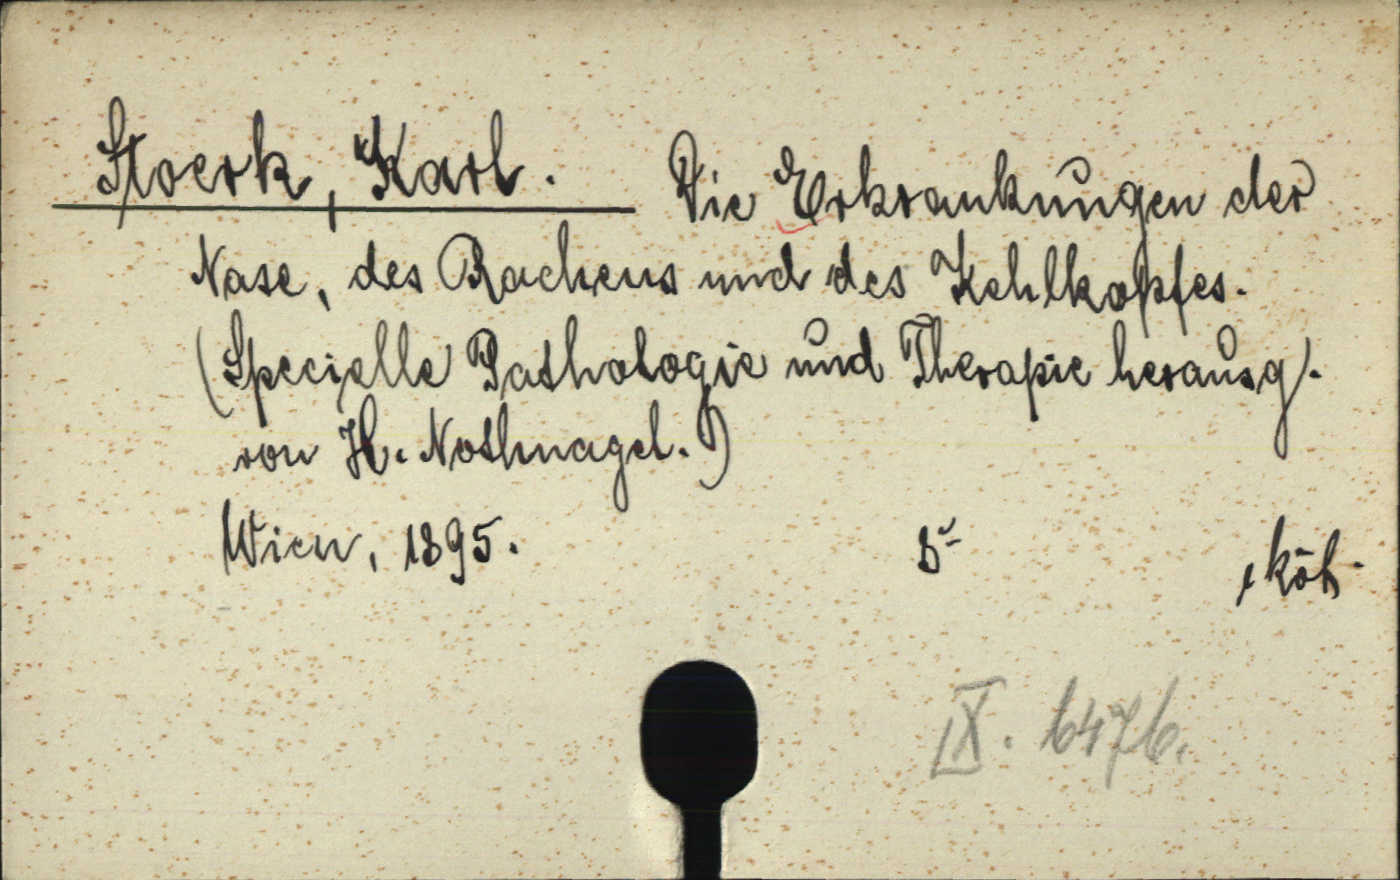 Stoerk, Karl. Die Erkrankungen der
Nase, des Rachens und des Kehlkopfes.
(Specielle Pathologie und Therapie herausg.
von H. Nothnagel.)
Wien, 1895. 8° köt.
IX. 6476.